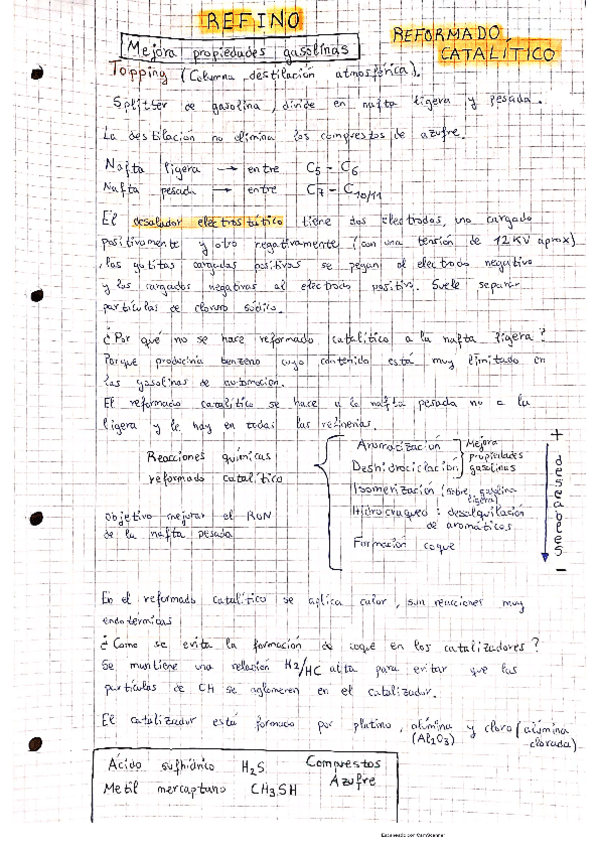 REFINO
REFORMADO CATALÍTICO
Mejora propiedades gasolinas
Topping (Columna destilación atmosférica).
Splitter de gasolina, divide en nafta ligera y pesada.
La destilacion no elimina los comprestos de azufre.
Nafta ligera → entre C5 - C6
Nafta pesada → entre C7 - C10/11
El desalador electrostático tiene dos electrodos, uno cargado
positivamente y otro negativamente (con una tensión de 12KV aprox)
, las gotitas cargadas positivas se pegan al electrodo negativo
y las cargadas negativas al electrodo positivo. Suele separar
partículas de cloruro sódico.
¿Por qué no se hace reformado catalítico a la nafta ligera?
Porque produciría benzeno cuyo contenido está muy limitado en
las gasolinas de automoción.
El reformado catalítico se hace a la nafta pesada no a la
ligera y le hay en todas las refinerias.
Reacciones químicas
reformado catalítico
objetivo mejorar el RON
de la nafta pesada
Aromatización
Deshidrociclación
Mejora
propiedades
gasolinas
Isomerización (sobre gasolina
ligera)
Hidrocraqueo : desalquilación
de aromáticos
Formación coque
+
deseables
-
En el reformado catalítico se aplica calor, son reacciones muy
endotérmicas
¿Como se evita la formación de coque en los catalizadores?
Se mantiene una relación H2/HC alta para evitar que las
partículas de CH se aglomeren en el catalizador.
El catalizador está formado por platino, alúmina y cloro (alúmina
(Al2O3) clorada)
Ácido sulfhídrico H2S
Metil mercaptano CH3SH
Comprestos
Azufre
Escaneado por CamScanner